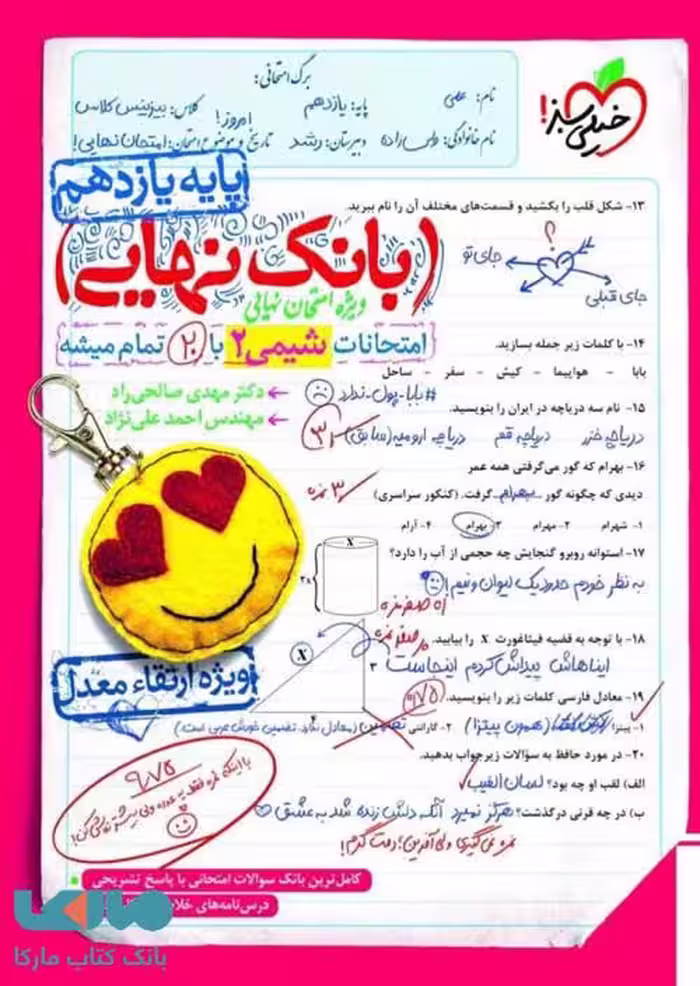 برگ امتحانی:
نام: علی
پایه: یازدهم
کلاس: بیزینس کلاس
امروز!
نام خانوادگی: ولی زاده
دبیرستان: رشد
تاریخ و موضوع امتحان: امتحان نهایی!
خیلی سبز!
پایه یازدهم
(بانک نهایی)
ویژه امتحان نهایی
امتحانات شیمی ۲ با ۲۰ تمام میشه
دکتر مهدی صالحی‌راد
مهندس احمد علی‌نژاد
۱۳- شکل قلب را بکشید و قسمت‌های مختلف آن را نام ببرید.
؟
جای تو
جای قبلی
۱۴- با کلمات زیر جمله بسازید.
بابا - هواپیما - کیش - سفر - ساحل
#بابا-پول-ندارد
۱۵- نام سه دریاچه در ایران را بنویسید.
دریاچه خزر دریاچه قم دریاچه ارومیه (سابق)
۱۶- بهرام که گور می‌گرفتی همه عمر
دیدی که چگونه گور بهرام گرفت. (کنکور سراسری)
۳ نمره
۱- شهرام ۲- مهرام ۳- بهرام ۴- آرام
۱۷- استوانه روبرو گنجایش چه حجمی از آب را دارد؟
X
۲x
به نظر خودم حدود یک لیوان و نیم!
۱۸- با توجه به قضیه فیثاغورث X را بیابید.
X
۳
۴
ایناهاش پیداش کردم اینجاست
۱۹- معادل فارسی کلمات زیر را بنویسید.
۰/۷۵
۱- پیتزا: (همون پیتزا) ۲- گارانتی: تضمین (معادل ندارد. تضمین خودش عربی است.)
۲۰- در مورد حافظ به سؤالات زیر جواب بدهید.
الف) لقب او چه بود؟ لسان الغیب
ب) در چه قرنی درگذشت؟ هرگز نمیرد آنکه دلش زنده شد به عشق
نمره نمی‌گیری ولی آفرین! دمت گرم!
ویژه ارتقاء معدل
۹/۷۵
کامل‌ترین بانک سوالات امتحانی با پاسخ تشریحی
درس‌نامه‌های
مارکا
بانک کتاب مارکا